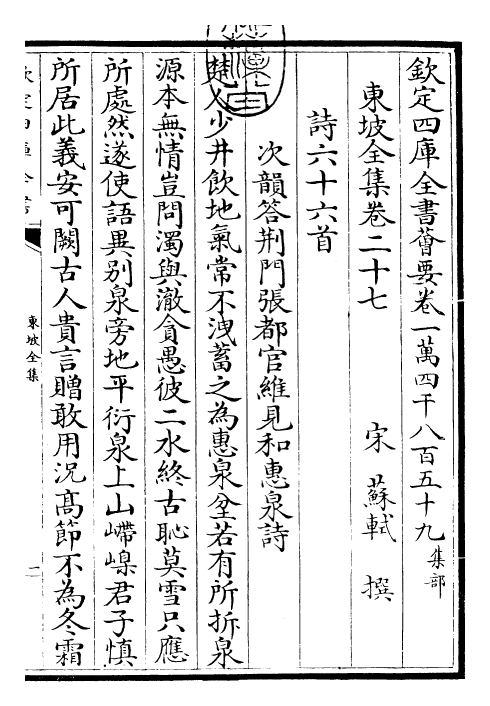 欽定四庫全書薈要卷一萬四千八百五十九 集部
東坡全集卷二十七
宋 蘇軾 撰
詩六十六首
次韻答荆門張都官維見和惠泉詩
楚人少井飲地氣常不洩蓄之為惠泉坌若有所折泉
源本無情豈問濁與澈貪愚彼二水終古恥莫雪只應
所處然遂使語異别泉旁地平衍泉上山嵽嵲君子慎
所居此義安可闕古人貴言贈敢用況高節不為冬霜
欽定四庫全書
東坡全集